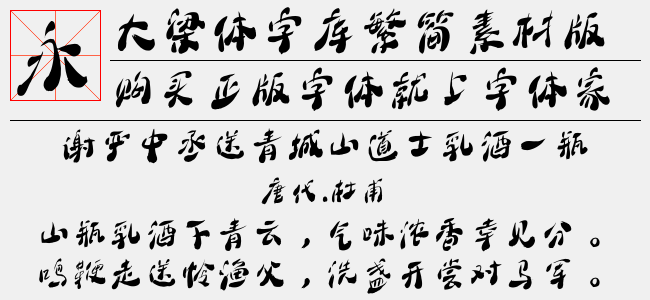 永
大梁体字库繁简素材版
购买正版字体就上字体家
谢严中丞送青城山道士乳酒一瓶
唐代.杜甫
山瓶乳酒下青云，气味浓香幸见分。
鸣鞭走送怜渔父，洗盏开尝对马军。